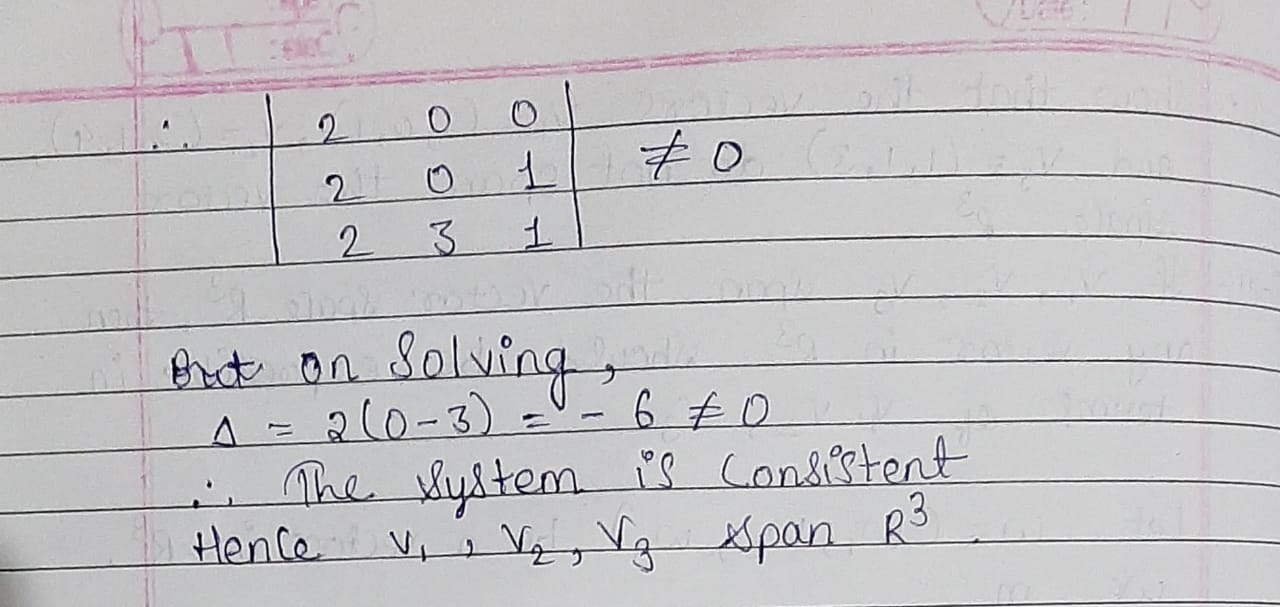 ∴ | 2 0 0 |
| 2 0 1 | ≠ 0
| 2 3 1 |
But on Solving,
Δ = 2(0-3) = -6 ≠ 0
∴ The System is Consistent
Hence V₁, V₂, V₃ span R³.